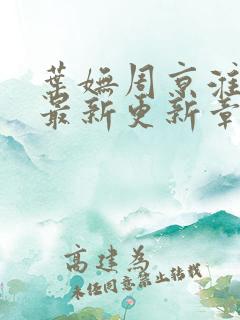 葉嫵周京淮
最新更新章
高建為
未經同意禁止轉載